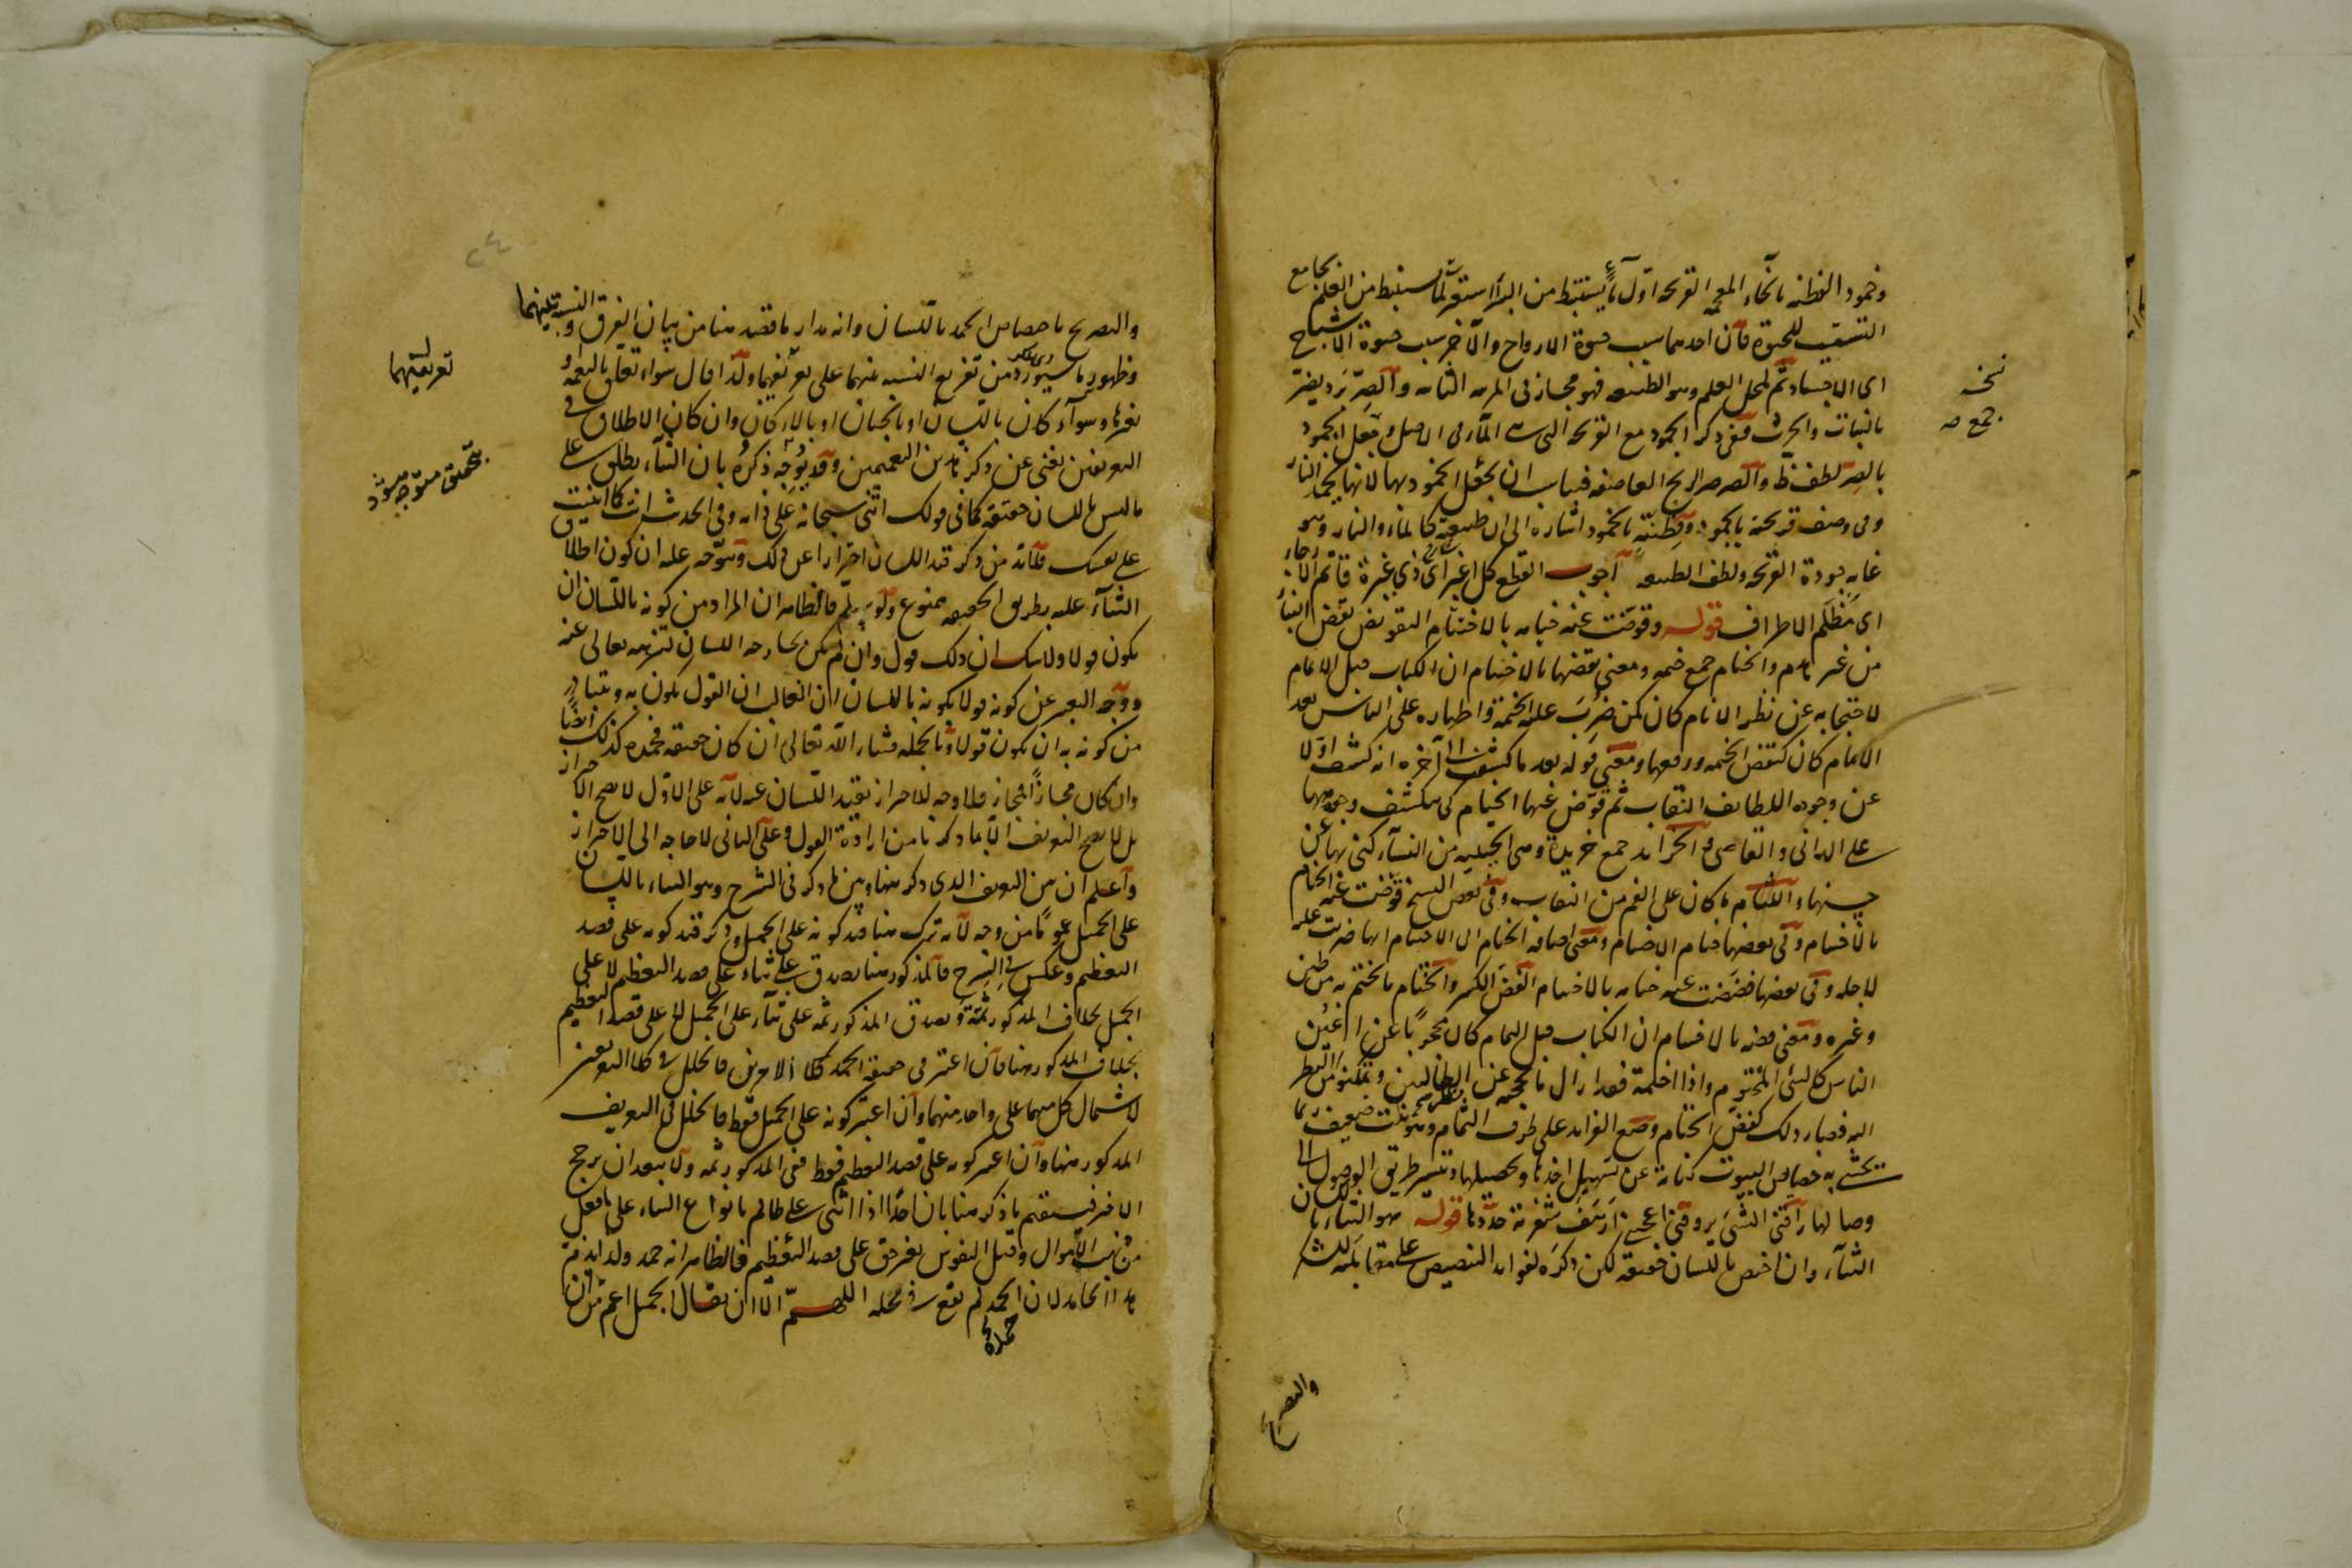 وخمود الفطنه بالخاء المعجمه القريحه اول ماء يستنبط من البئر استعير لما يستنبط من العلم بجامع
التسبب للحيوة فان احدهما سبب حيوة الارواح والآخر سبب حيوة الاشباح
اى الاجساد ثم لمحل العلم وهو الطبيعه فهو مجاز فى المرتبه الثانيه والصر برد يضر
بالنبات والحرث ففى ذكر الجمود مع القريحه التى هى الماء فى الاصل وجعل الجمود
بالصر لطف والصرصر الريح العاصفه فناسب ان يجعل الخمود بها لانها تخمد النار
وفى وصف قريحته بالجمود وفطنته بالخمود اشاره الى ان طبيعته كالماء والنار وهو
غايه جودة القريحه ولطف الطبيعه اجوب القطع كل اغبر اى ذى غبرة قاتم الارجاء
اى مظلم الاطراف قوله وقوضت عنه خيامه بالاختتام التقويض نقض البناء
من غير هدم والخيام جمع خيمه ومعنى نقضها بالاختتام ان الكتاب قبل الاتمام
لاحتجابه عن نظر الانام كان كمن ضرب عليه الخيمة واظهاره على الناس بعد
الاتمام كان كنقض الخيمه ورفعها ومعنى قوله بعد ما كشفت الى آخره انه كشف اولا
عن وجوه اللطايف النقاب ثم قوض عنها الخيام كى ينكشف وجوهها
على الدانى والقاصى والخرائد جمع خريدة وهى الحييه من النساء كنى بها عن
حسنها واللثام ما كان على الفم من النقاب وفى بعض النسخ قوضت عنه الخيام
بالاختتام وفى بعضها ختام الاختتام ومعنى اضافه الختام الى الاختتام انها ضربت عليه
لاجله وفى بعضها فضضت عنه ختامه بالاختتام الفض الكسر والختام ما يختم به من طين
وغيره ومعنى فضه بالاختتام ان الكتاب قبل التمام كان محجوبا عن اعين
الناس كالشى المختوم واذا اختتمه فقد ازال ما يحجبه عن الطالبين وتمكنوا من النظر
اليه فصار ذلك كفض الختام وضع الفرائد على طرف الثمام وهو نبت ضعيف ربما
يحشى به خصاص البيوت كناية عن تسهيل اخذها وتحصيلها وتيسير طريق الوصول الى
وصالها راقنى الشى يروقنى اعجبنى ارهف شفرته حددها قوله هو الثناء باللسان
الثناء وان اختص باللسان حقيقه لكن ذكره لفوائد التنصيص على مقابلته للشكر
والتصريح
نسخه
جمع صه
والتصريح باختصاص الحمد باللسان وانه مدار ما قصد هنا من بيان الفرق والنسبة بينهما
وظهور ما سيورد من تفريع النسبه بينهما على تعريفيهما ولذا قال سواء تعلق بالنعمه او
بغيرها وسواء كان باللسان او بالجنان او بالاركان وان كان الاطلاق فى
التعريفين يغنى عن ذكر هذين التعميمين وقد يوجه ذكره بان الثناء يطلق على
ما ليس باللسان حقيقه كما فى قولك اثنى سبحانه على ذاته وفى الحديث انت كما اثنيت
على نفسك فلابد من ذكر قيد اللسان احترازا عن ذلك ويتوجه عليه ان كون اطلاق
الثناء عليه بطريق الحقيقه ممنوع ولو سلم فالظاهر ان المراد من كونه باللسان ان
يكون قولا ولا شك ان ذلك قول وان لم يكن بجارحه اللسان لتنزهه تعالى عنه
ووجه التعبير عن كونه قولا بكونه باللسان ان الغالب ان القول يكون به ويتبادر
من كونه به ان يكون قولا وبالجمله فثناء الله تعالى ان كان حقيقه فحمده كذلك ايضا
وان كان مجازا فمجاز فلا وجه للاحتراز بقيد اللسان عنه لانه على الاول لا يصح الاحتراز
بل لا يصح التعريف الا بما ذكرنا من ارادة القول وعلى الثانى لا حاجه الى الاحتراز
واعلم ان بين التعريف الذى ذكر هنا وبين ما ذكر فى الشرح وهو الثناء باللسان
على الجميل عموما من وجه لانه ترك هنا قيد كونه على الجميل وذكر قيد كونه على قصد
التعظيم وعكس فى الشرح فالمذكور هنا يصدق على ثناء على قصد التعظيم لا على
الجميل بخلاف المذكور ثمة ويصدق المذكور ثمه على ثناء على الجميل لا على قصد التعظيم
بخلاف المذكور هنا فان اعتبر فى حقيقه الحمد كلا الامرين فالخلل فى كلا التعريفين
لاشتمال كل منهما على واحد منهما وان اعتبر كونه على الجميل فقط فالخلل فى التعريف
المذكور هنا وان اعتبر كونه على قصد التعظيم فقط ففى المذكور ثمه ولا يبعد ان يرجح
الاخير فيستقيم ما ذكر هنا بان احدا اذا اثنى على ظالم بانواع الثناء على ما فعل
من نهب الاموال وقتل النفوس بغير حق على قصد التعظيم فالظاهر انه حمد ولذا يذم
هذا الحامد لان الحمد لم يقع فى محله اللهم الا ان يقال الجميل اعم من ان
حمده
تعريفيهما